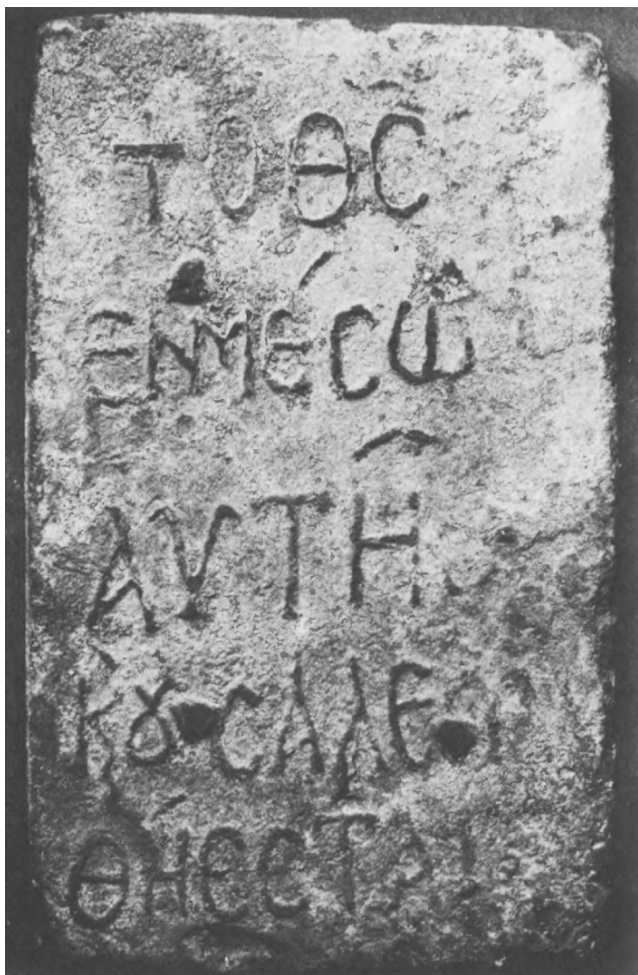 + Ο ΘC
ΕΝ ΜΕCΩ
ΑΥΤΗ
Κ Ȣ CΑΛΕΥ
ΘΗCΕΤΑΙ